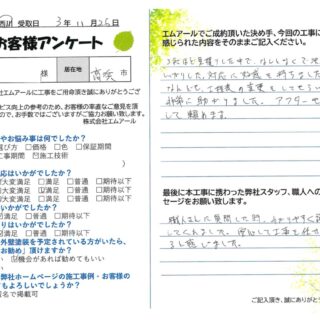 西川 受取日 3年11月25日
お客様アンケート
様 居在地 高浜市
社エムアールに工事をご用命頂き誠にありがとうござ
ビス向上の参考のため、お客様の率直なご意見を頂
ので、お手数ではございますがご協力お願い致します。
株式会社エムアール
やお悩み事は何でしたか?
選び方 □価格 □色 □保証期間
工事期間 ☑施工技術
応はいかがでしたか?
大変満足 □満足 □普通 □期待以下
大変満足 □満足 □普通 □期待以下
はいかがでしたか?
大変満足 ☑満足 □普通 □期待以下
りはいかがでしたか?
☑満足 □普通 □期待以下
外壁塗装を予定されている方がいたら、
お勧め」頂けますか?
い ☑機会があれば勧めてもいい
い
弊社ホームページの施工事例・お客様の
もよろしいでしょうか?
署名で掲載可
エムアールでご成約頂いた決め手、今回の工事に
感じられた内容をそのままご記入ください。
非常に助かりました。アフター
して頼めます。
最後に本工事に携わった弊社スタッフ、職人への
セージをお願い致します。
職人さんに質問した時、わかりやすく
してくれました。安心して工事を任せ
ると感いました。
ご記入頂き、誠にありがとう